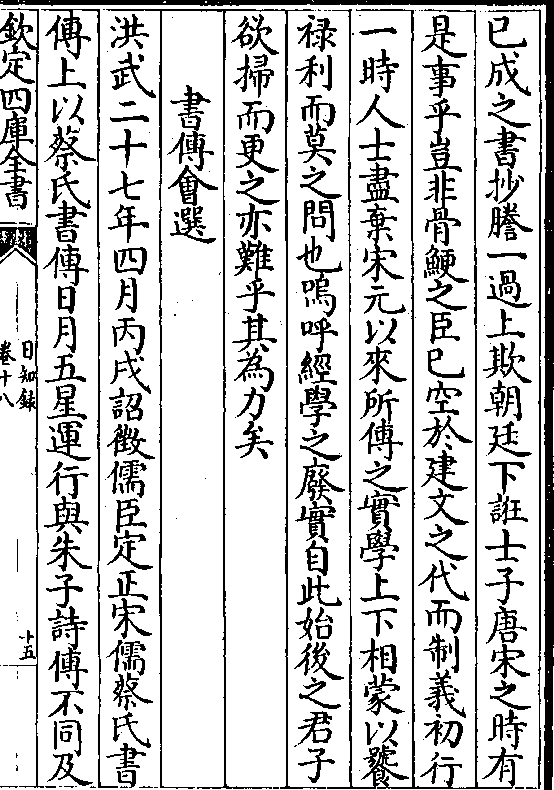 已成之書抄謄一過上欺朝廷下誑士子唐宋之時有
是事乎豈非骨鯁之臣已空於建文之代而制義初行
一時人士盡棄宋元以來所傳之實學上下相蒙以饕
祿利而莫之問也嗚呼經學之廢實自此始後之君子
欲掃而更之亦難乎其為力矣
書傳會選
洪武二十七年四月丙戌詔徵儒臣定正宋儒蔡氏書
傳上以蔡氏書傳日月五星運行與朱子詩傳不同及
欽定四庫全書
日知錄
卷十八
十五